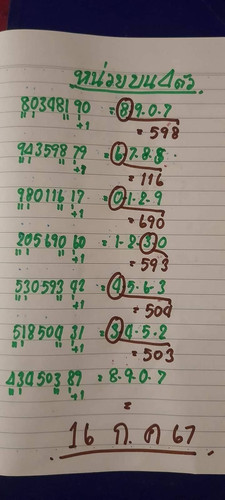 หน่วยบน4ตัว
803481 90 = 8.9.0.7
+1
= 598
943598 79 = 6.7.8.8
+1
= 116
980116 17 = 0.1.2.9
+1
= 690
205690 60 = 1.2.3.0
+1
= 593
530593 92 = 4.5.6.3
+1
= 504
518504 31 = 3.4.5.2
+1
= 503
434503 89 = 8.9.0.7
+1
=
16 ก.ค 67